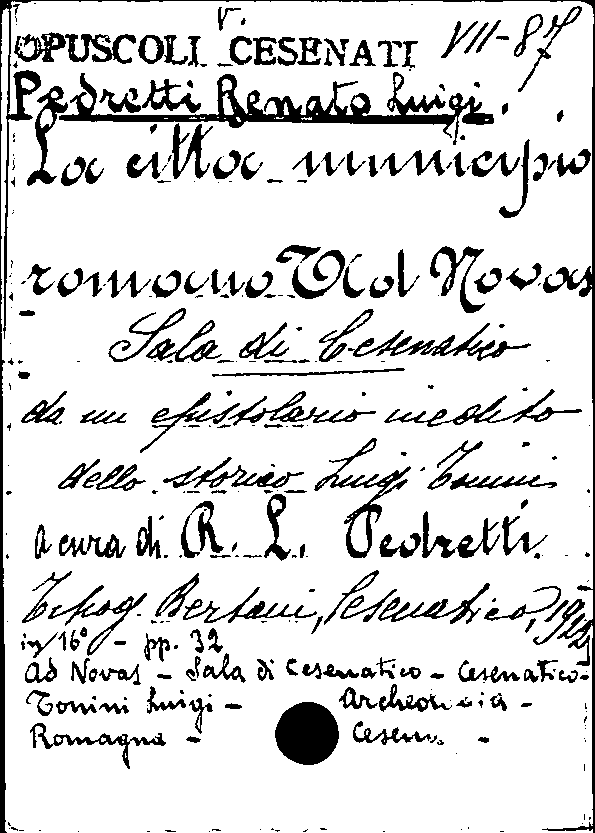 v.
OPUSCOLI CESENATI VII-87
Pedretti Renato Luigi.
La città municipio
romano "Ad Novas
Sala di Cesenatico
da un epistolario inedito
dello storico Luigi Tonini
a cura di R. L. Pedretti.
Tipog. Bertoni, Cesenatico,
in 16° - pp. 32
Ad Novas - Sala di Cesenatico - Cesenatico-
Tonini Luigi - Archeologia -
Romagna - Cesena -